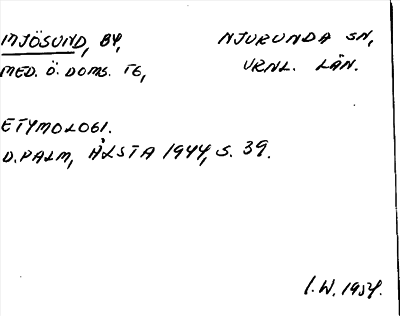 MJÖSUND, BY, NJURUNDA SN,
MED. Ö. DOMS. TG, VRNL. LÄN.
ETYMOLOGI.
D. PALM, ÅLSTA 1944, S. 39.
I. W. 1954.